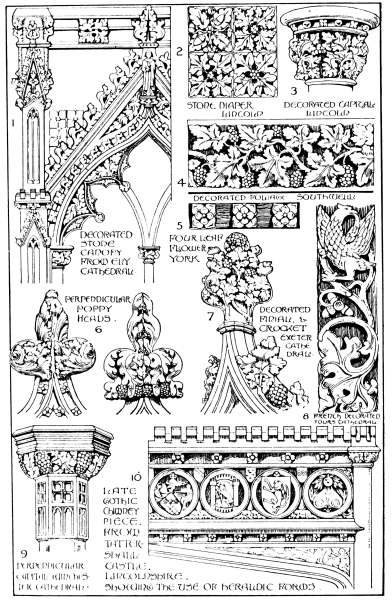 1
DECORATED
STONE
CANOPY
FROM ELY
CATHEDRAL
2
STONE DIAPER
LINCOLN
3
DECORATED CAPITAL
LINCOLN
4
DECORATED FOLIAGE SOUTHWELL
5
FOUR LEAF
FLOWER
YORK
PERPENDICULAR
POPPY
HEADS.
6
7
DECORATED
FINIAL &
CROCKET
EXETER
CATHE
DRAL
8 FRENCH DECORATED
TOURS CATHEDRAL
9
PERPENDICULAR
CAPITAL WINCHES-
TER CATHEDRAL
10
LATE
GOTHIC
CHIMNEY
PIECE.
FROM
TATTER-
SHALL
CASTLE.
LINCOLNSHIRE.
SHOWING THE USE OF HERALDIC FORMS.